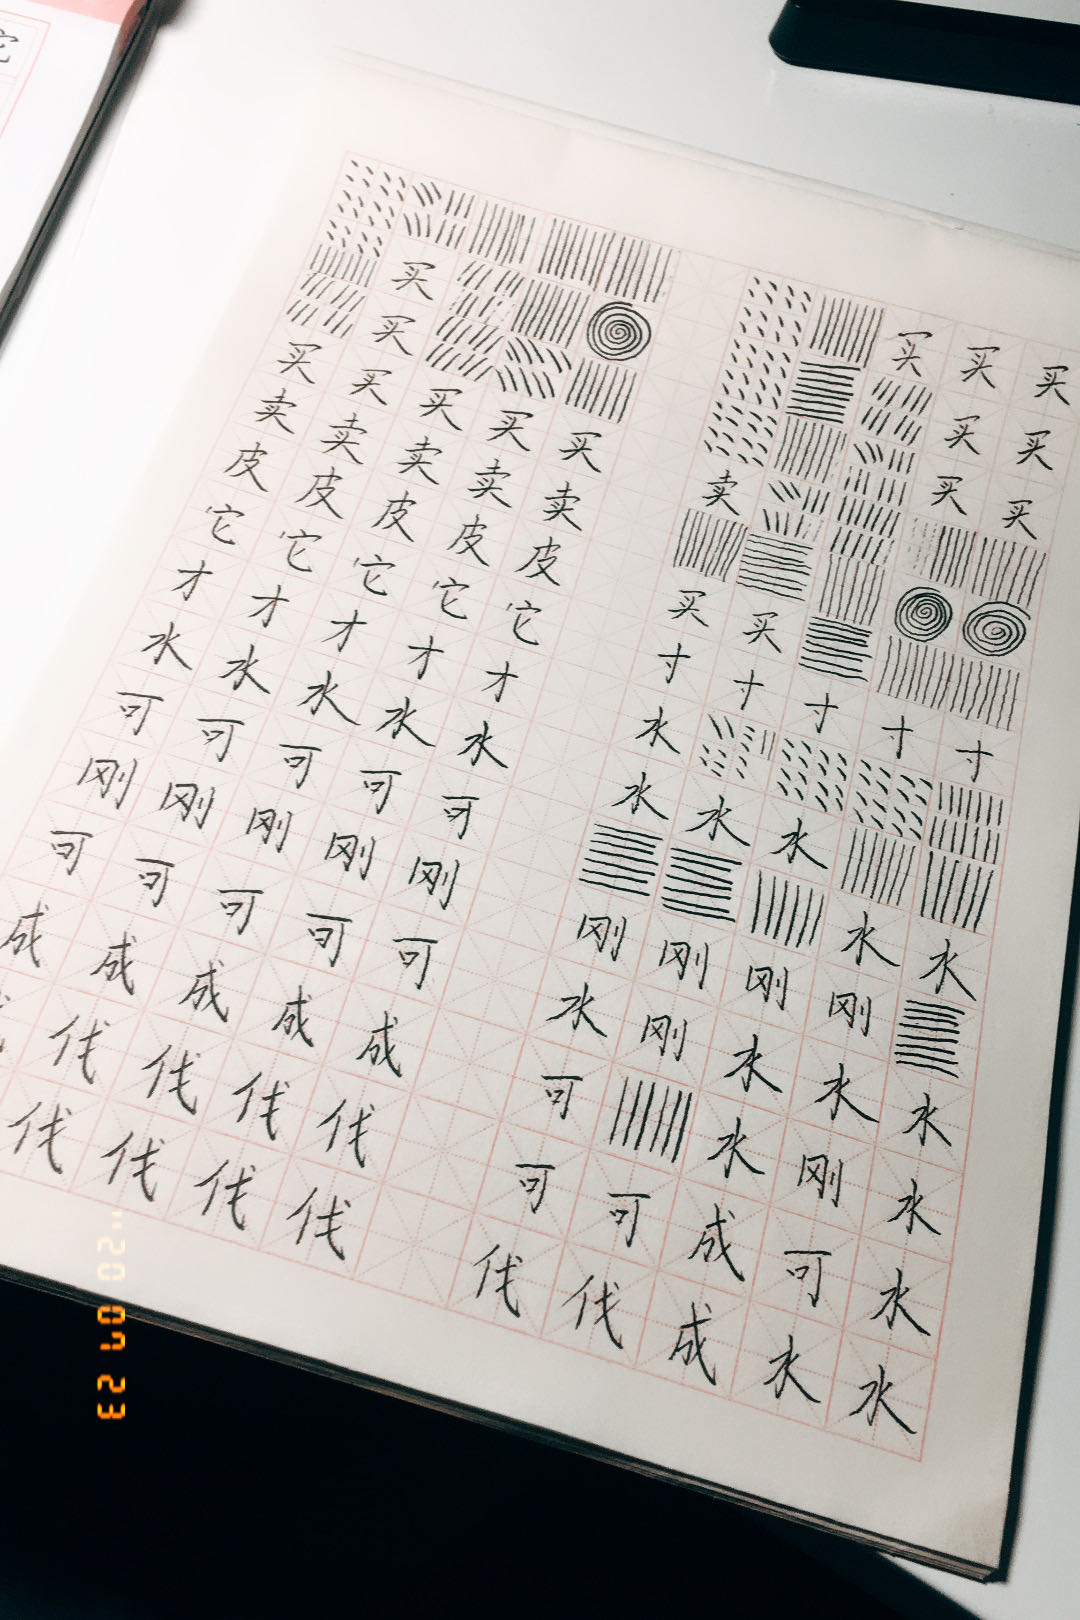 它
买
买
买 买 买 买 买
卖 卖 卖 卖 卖
皮 皮 皮 皮 皮
它 它 它 它 它
才 才 才 才 才
水 水 水 水 水
可 可 可 可 可
刚 刚 刚 刚 刚
可 可 可 可 可
成 成 成 成 成
代 代 代 代
代 代 代 代
买 买 买
买 买
买 买
卖
买 买
寸 寸 寸 寸 寸
水
水 水 水
水 水
刚 刚 刚 刚
水 刚 水 水 水
可 水 刚 水
可 可 成 可 水
代 代 成 水 水
'20 07 23